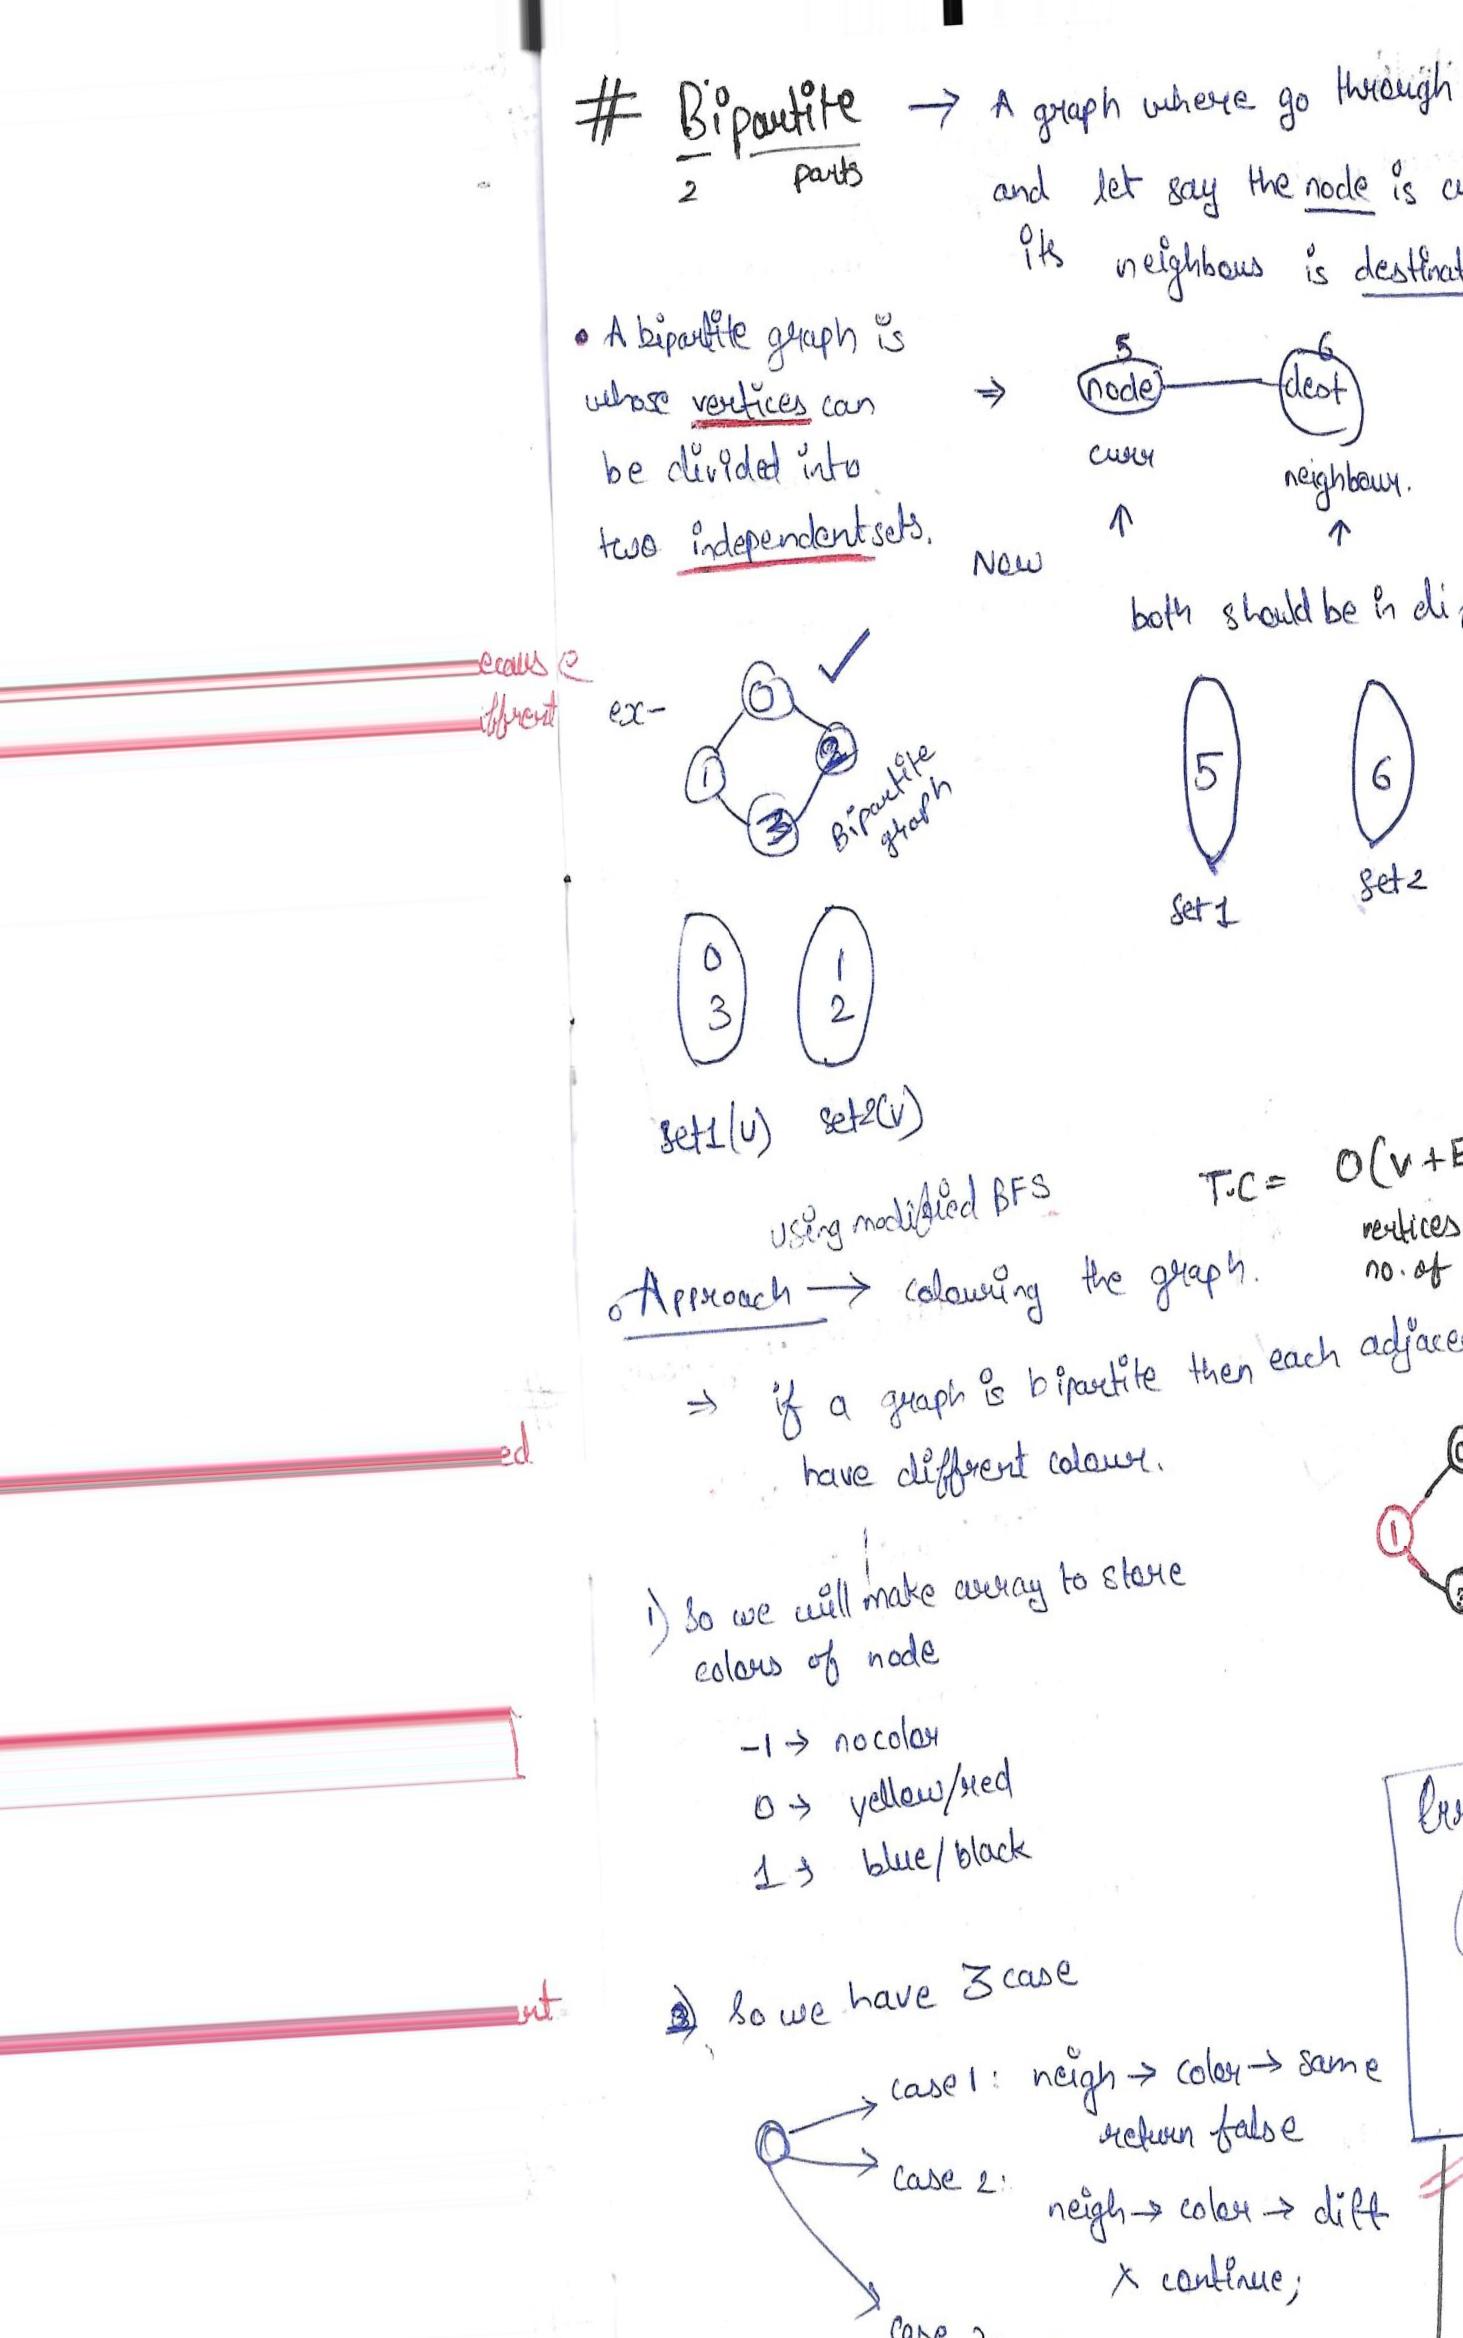 # Bipartite → A graph where go through
2 parts
and let say the node is
its neighbous is destinat
• A bipartite graph is
whose vertices can
be divided into
two independent sets.
⇒ 5 6
node dest
curr neighbour.
↑ ↑
Now
both should be in di
ecause
iffrent
ex- ✓
0
1 2
3
Bipartite
graph
5 6
set1 set2
0 1
3 2
set1(u) set2(v)
using modified BFS
T.C = O(V+E
vertices
no. of
Approach → colouring the graph.
⇒ if a graph is bipartite then each adjace
have diffrent colour.
ed
1
1) So we will make array to store
colors of node
-1 → no color
0 → yellow/red
1 → blue/black
3) So we have 3 case
rt
case 1: neigh → color → same
return false
case 2:
neigh → color → diff
x continue;
case